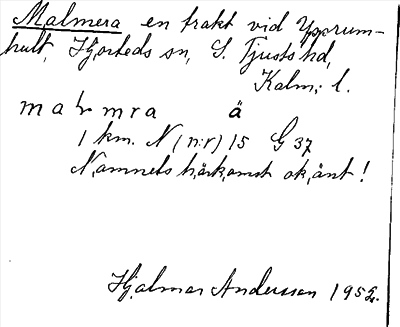 Malmera en trakt vid Ypprum-
hult, Hjorteds sn, S. Tjusts hd,
Kalm: l.
malmra ä
1 km. N (n:r) 15 G 37
Namnets härkomst okänt!
Hjalmar Andersson 1952.